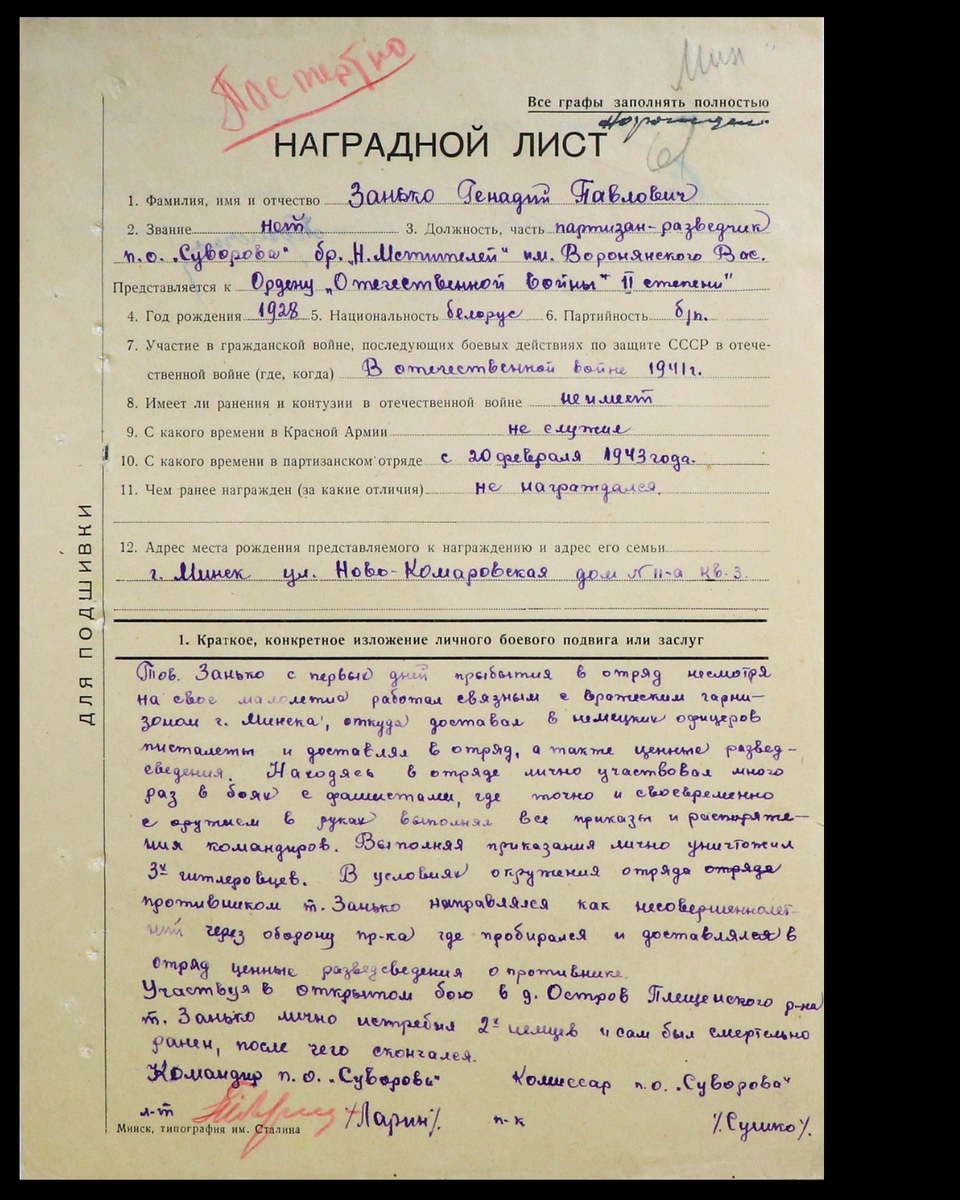 Посмертно
Мин
Все графы заполнять полностью
НАГРАДНОЙ ЛИСТ
1. Фамилия, имя и отчество Занько Генадий Павлович
2. Звание нет 3. Должность, часть партизан-разведчик
п.о. „Суворова" бр. „Н.Мстителей" им. Воронянского Вас.
Представляется к Ордену „Отечественной войны" II степени"
4. Год рождения 1928 5. Национальность белорус 6. Партийность б/п.
7. Участие в гражданской войне, последующих боевых действиях по защите СССР в отече-
ственной войне (где, когда) В отечественной войне 1941г.
8. Имеет ли ранения и контузии в отечественной войне не имеет
9. С какого времени в Красной Армии не служил
10. С какого времени в партизанском отряде с 20 февраля 1943 года.
11. Чем ранее награжден (за какие отличия) не награждался.
12. Адрес места рождения представляемого к награждению и адрес его семьи
г. Минск ул. Ново-Комаровская дом № 11-а кв. 3.
ДЛЯ ПОДШИВКИ
1. Краткое, конкретное изложение личного боевого подвига или заслуг
Тов. Занько с первых дней прыбытия в отряд несмотря
на свое малолетие работал связным с вражеским гарни-
зоном г. Минска, откуда доставал в немецких офицеров
писталеты и доставлял в отряд, а также ценные развед-
сведения. Находясь в отряде лично участвовал много
раз в боях с фашистами, где точно и своевременно
с оружием в руках выполнял все приказы и распоряже-
ния командиров. Выполняя приказания лично уничтожил
3х гитлеровцев. В условиях окружения отряда отряда
противником т. Занько направлялся как несовершеннолет-
ний через оборону пр-ка где пробирался и доставлялся в
отряд ценные разведсведения о противнике.
Участвуя в открытом бою в д. Остров Плещенского р-на
т. Занько лично истребил 2х немцев и сам был смертельно
ранен, после чего скончался.
Командир п.о. „Суворова" Комиссар п.о. „Суворова"
л-т /Ларин/. п-к /.Сушко/.
Минск, типография им. Сталина